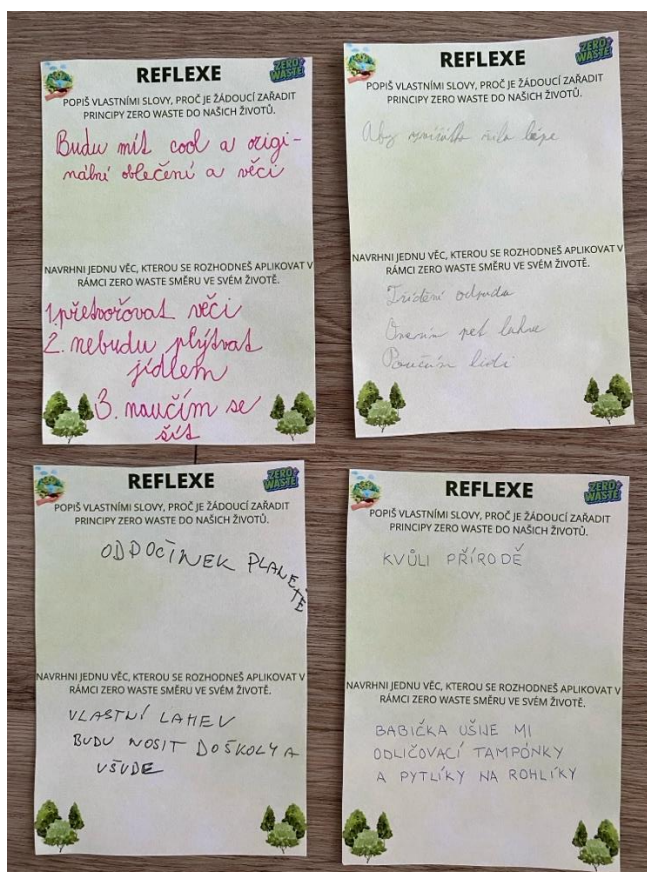 REFLEXE
ZERO
WASTE
POPIŠ VLASTNÍMI SLOVY, PROČ JE ŽÁDOUCÍ ZAŘADIT
PRINCIPY ZERO WASTE DO NAŠICH ŽIVOTŮ.
Budu mít cool a origi-
nální oblečení a věci
NAVRHNI JEDNU VĚC, KTEROU SE ROZHODNEŠ APLIKOVAT V
RÁMCI ZERO WASTE SMĚRU VE SVÉM ŽIVOTĚ.
1. přetvořovat věci
2. nebudu plýtvat
jídlem
3. naučím se
šít
REFLEXE
ZERO
WASTE
POPIŠ VLASTNÍMI SLOVY, PROČ JE ŽÁDOUCÍ ZAŘADIT
PRINCIPY ZERO WASTE DO NAŠICH ŽIVOTŮ.
Aby zvířátka žila lépe
NAVRHNI JEDNU VĚC, KTEROU SE ROZHODNEŠ APLIKOVAT V
RÁMCI ZERO WASTE SMĚRU VE SVÉM ŽIVOTĚ.
Třídění odpadu
pet lahve
Poučím lidi
REFLEXE
ZERO
WASTE
POPIŠ VLASTNÍMI SLOVY, PROČ JE ŽÁDOUCÍ ZAŘADIT
PRINCIPY ZERO WASTE DO NAŠICH ŽIVOTŮ.
ODPOČINEK PLANETĚ
NAVRHNI JEDNU VĚC, KTEROU SE ROZHODNEŠ APLIKOVAT V
RÁMCI ZERO WASTE SMĚRU VE SVÉM ŽIVOTĚ.
VLASTNÍ LAHEV
BUDU NOSIT DO ŠKOLY A
VŠUDE
REFLEXE
ZERO
WASTE
POPIŠ VLASTNÍMI SLOVY, PROČ JE ŽÁDOUCÍ ZAŘADIT
PRINCIPY ZERO WASTE DO NAŠICH ŽIVOTŮ.
KVŮLI PŘÍRODĚ
NAVRHNI JEDNU VĚC, KTEROU SE ROZHODNEŠ APLIKOVAT V
RÁMCI ZERO WASTE SMĚRU VE SVÉM ŽIVOTĚ.
BABIČKA UŠIJE MI
ODLIČOVACÍ TAMPÓNKY
A PYTLÍKY NA ROHLÍKY